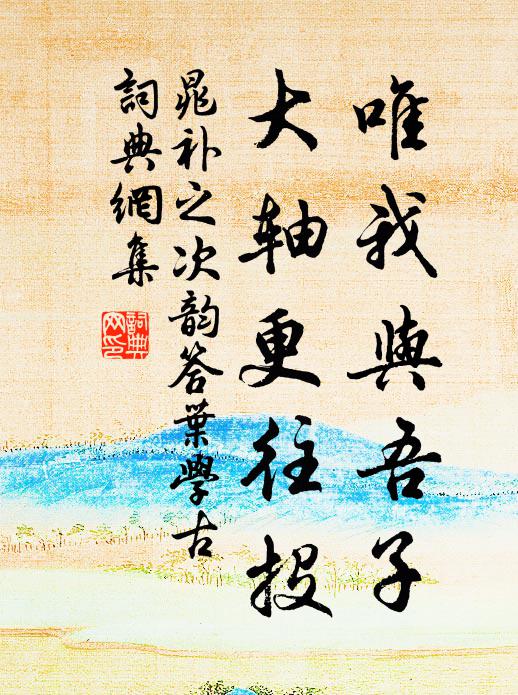 唯我與吾子
大轴更往投
晁补之次韵答葉學古
詞典網集
詞典
网印